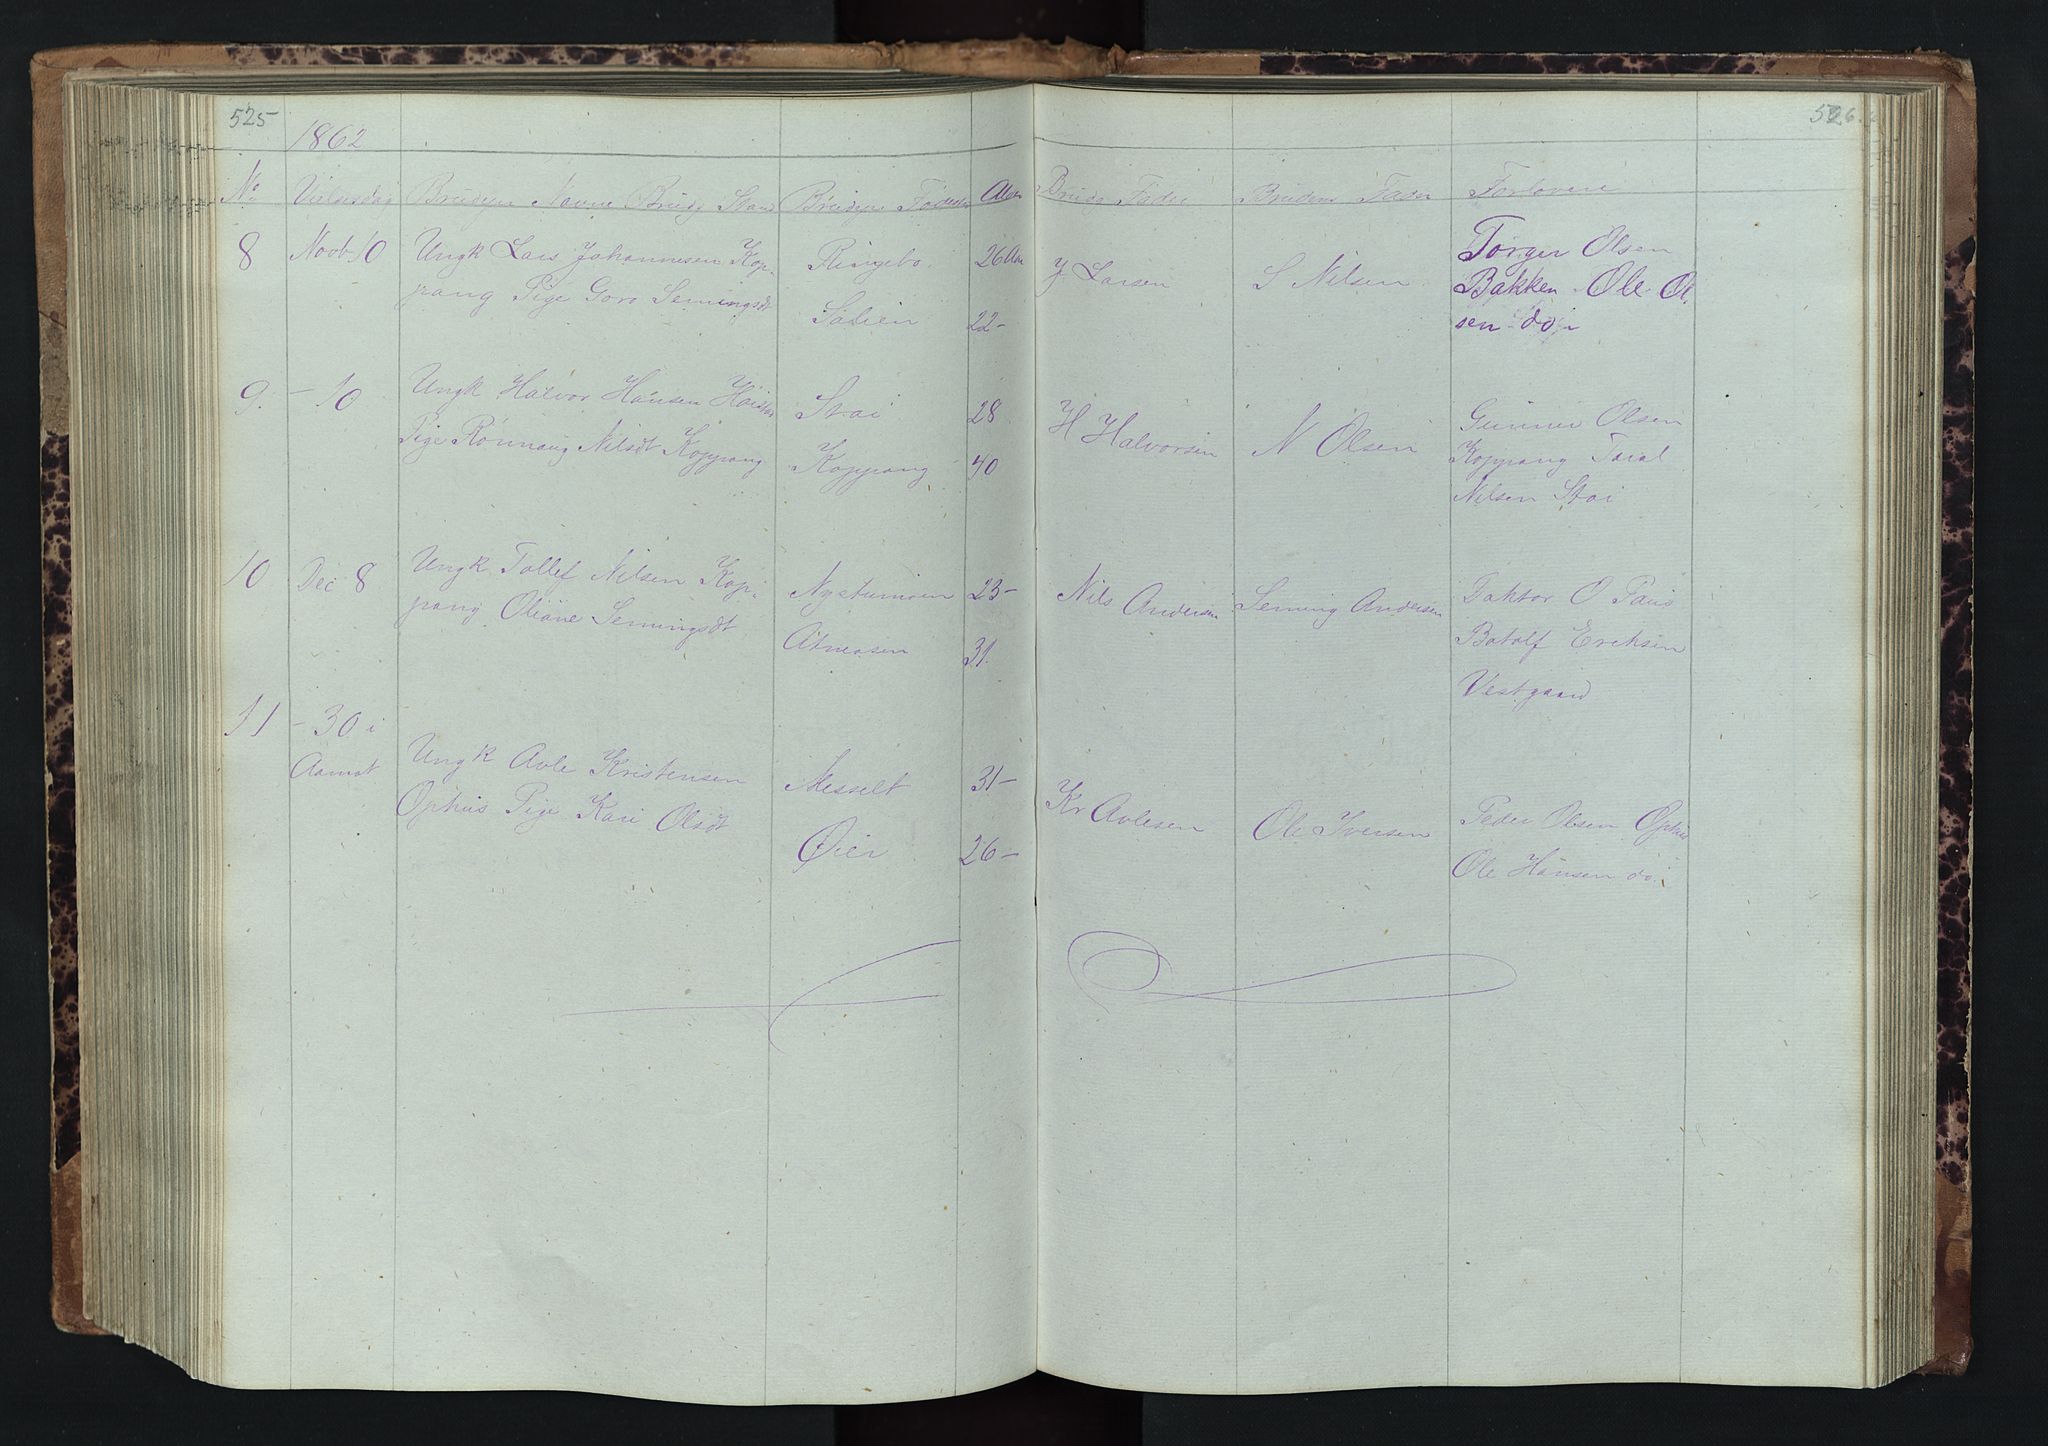 525
526
1862
No Vielsesdag Brudepn Navne Brudg Stand Brudepn Fødested Alder Brudg Fader Brudens Fader Forlovere
8 Novb 10 Ungk Lars Johannesen Kop-
pang Pige Goro Semingsdt
Ringebo 26 Aar
Sollien 22-
J Larsen
S Nilsen
Torger Olsen
Bakken Ole Ol
sen do
9. - 10 Ungk Halvor Hansen
Pige Rönnaug Nilsdt Koppang
Stai 28
Koppang 40
H Halvorsen
N Olsen
Gunner Olsen
Koppang
Nilsen Stai
10 Dec 8 Ungk Tollef Nilsen Kop-
pang Oliane Semingsdt
Nystumoen 23-
Atneosen 31.
Nils Andersen
Seming Andersen
Faktor O Paus
Botolf Eriksen
Vestgaard
11 - 30 i
Aamot
Ungk Avle Kristensen
Ophus Pige Kari Olsdt
Messelt 31-
Øier 26-
Kr Avlesen
Ole Iversen
Peder Olsen Ophus
Ole Hansen do